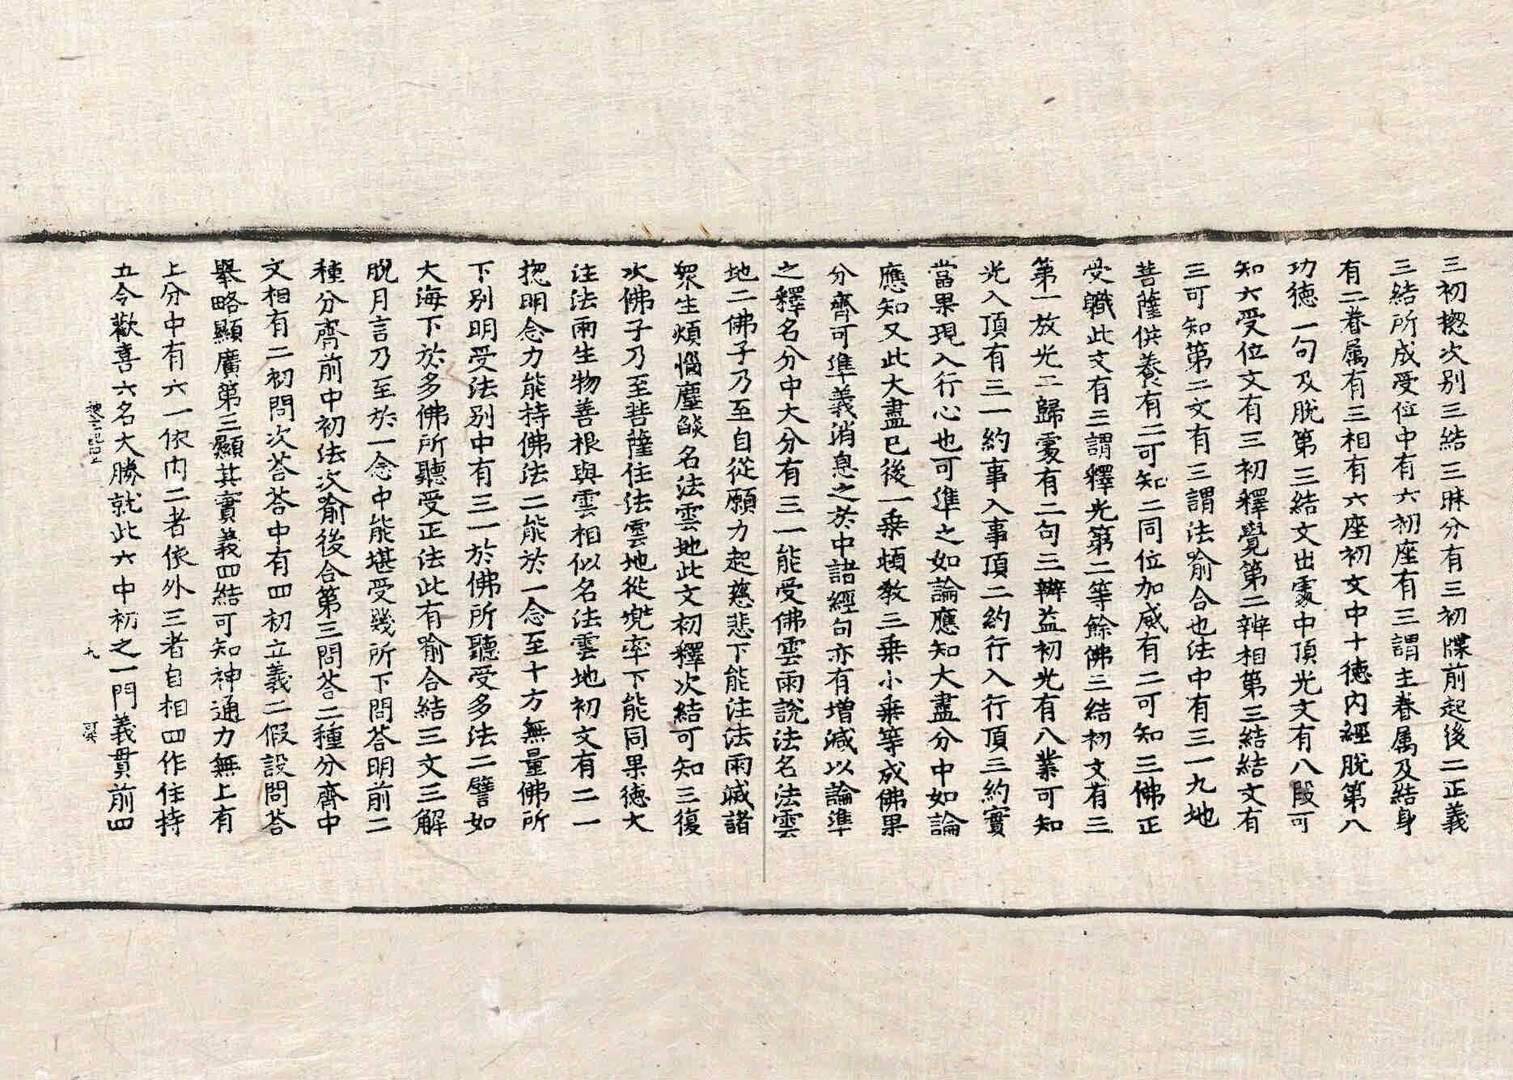 三初揔次别三結三牀分有三初牒前起後二正義
三結所成受位中有六初座有三謂主眷属及結身
有二眷属有三相有六座初文中十德内經脫第八
功德一句及脫第三結文出䖏中頂光文有八段可
知六受位文有三初釋覺第二辨相第三結結文有
三可知第二文有三謂法喻合也法中有三一九地
菩薩供養有二可知二同位加威有二可知三佛正
受職此文有三謂釋光第二等餘佛三結初文有三
第一放光二歸䖏有二句三辨益初光有八業可知
光入頂有三一約事入事頂二約行入行頂三約實
當果現入行心也可準之如論應知大盡分中如論
應知又此大盡已後一乗頓教三乗小乗等成佛果
分齊可準義消息之於中諸經句亦有增减以論準
之釋名分中大分有三一能受佛雲雨說法名法雲
地二佛子乃至自從願力起慈悲下能注法雨滅諸
衆生煩惱塵燄名法雲地此文初釋次結可知三復
次佛子乃至菩薩住法雲地從兜率下能同果德大
注法雨生物善根與雲相似名法雲地初文有二一
揔明念力能持佛法二能於一念至十方無量佛所
下别明受法别中有三一於佛所聽受多法二譬如
大海下於多佛所聽受正法此有喻合結三文三解
脫月言乃至於一念中能堪受幾所下問荅明前二
種分齊前中初法次喻後合第三問荅二種分齊中
文相有二初問次荅荅中有四初立義二假設問荅
舉略顯廣第三顯其實義四結可知神通力無上有
上分中有六一依内二者依外三者自相四作住持
五令歡喜六名大勝就此六中初之一門義貫前四
九